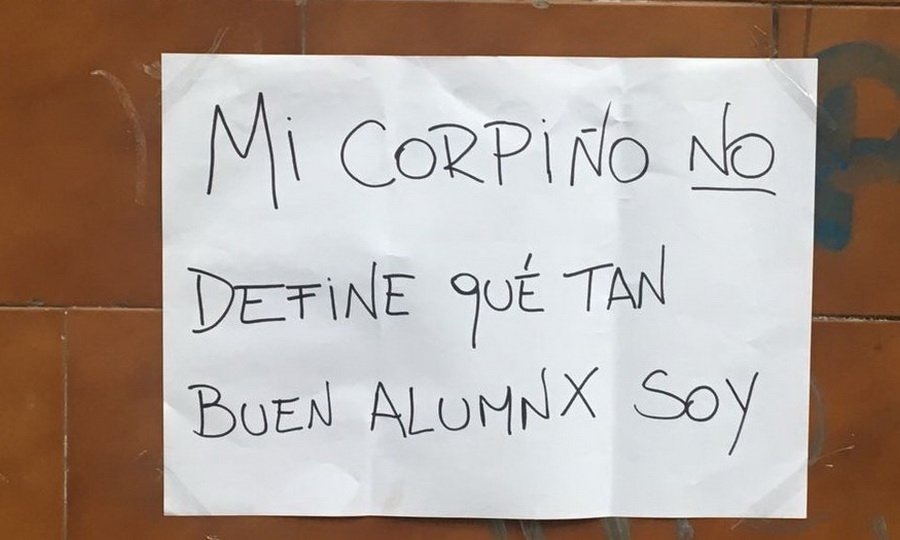 Mi CORPIÑO NO
DEFINE QUÉ TAN
BUEN ALUMNX SOY